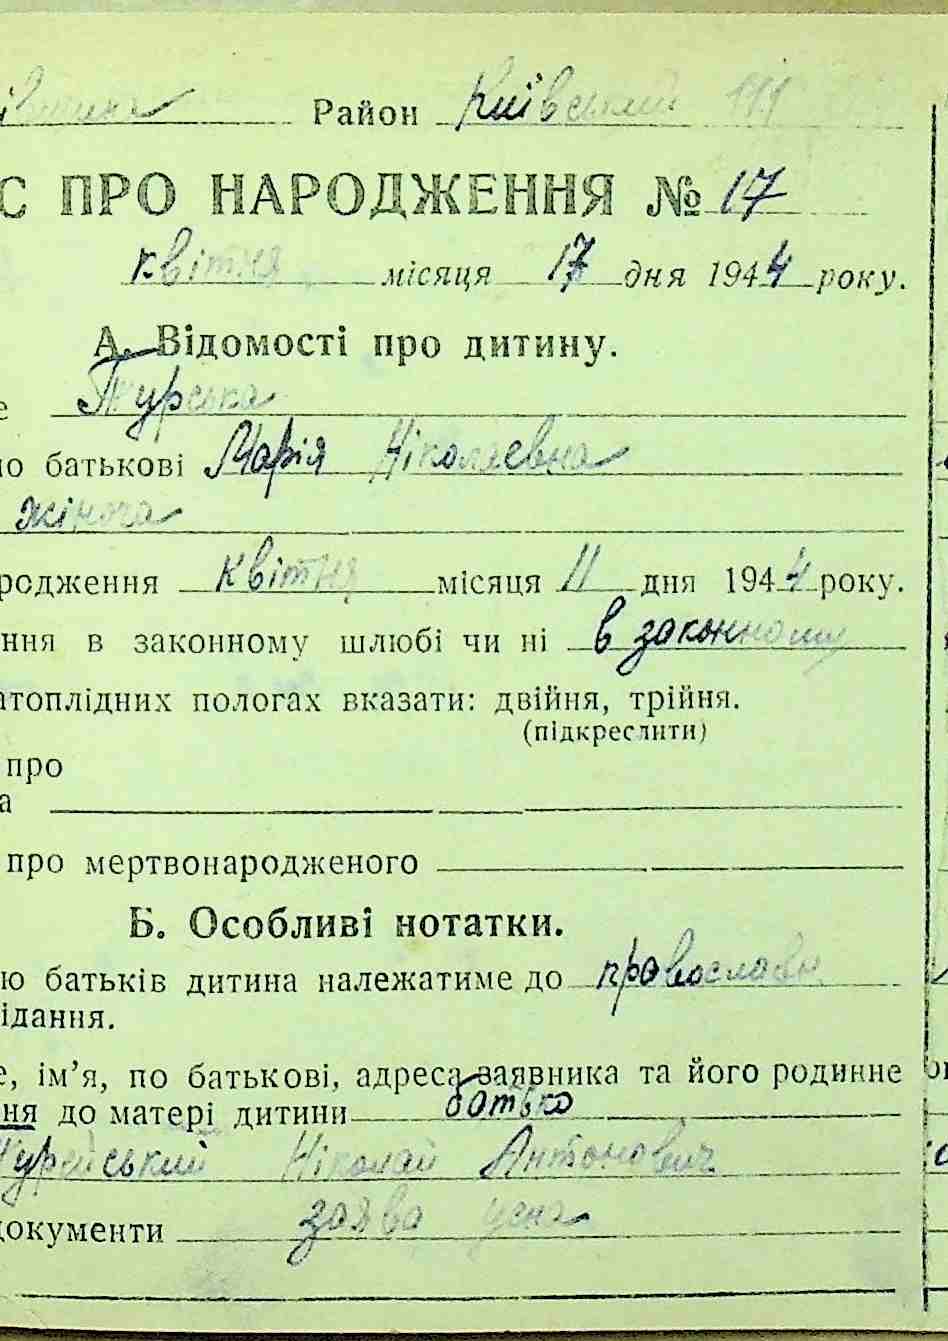 Район Київський
С ПРО НАРОДЖЕННЯ № 17
квітня місяця 17 дня 1944 року.
А. Відомості про дитину.
е Турська
по батькові Марія Ніколаевна
жіноча
родження квітня місяця 11 дня 1944 року.
ння в законному шлюбі чи ні в законному
атоплідних пологах вказати: двійня, трійня.
(підкреслити)
про
а
про мертвонародженого
Б. Особливі нотатки.
ю батьків дитина належатиме до православн
ідання.
е, ім’я, по батькові, адреса заявника та його родинне
ня до матері дитини батько
Ніколай Антонович
документи заява усна